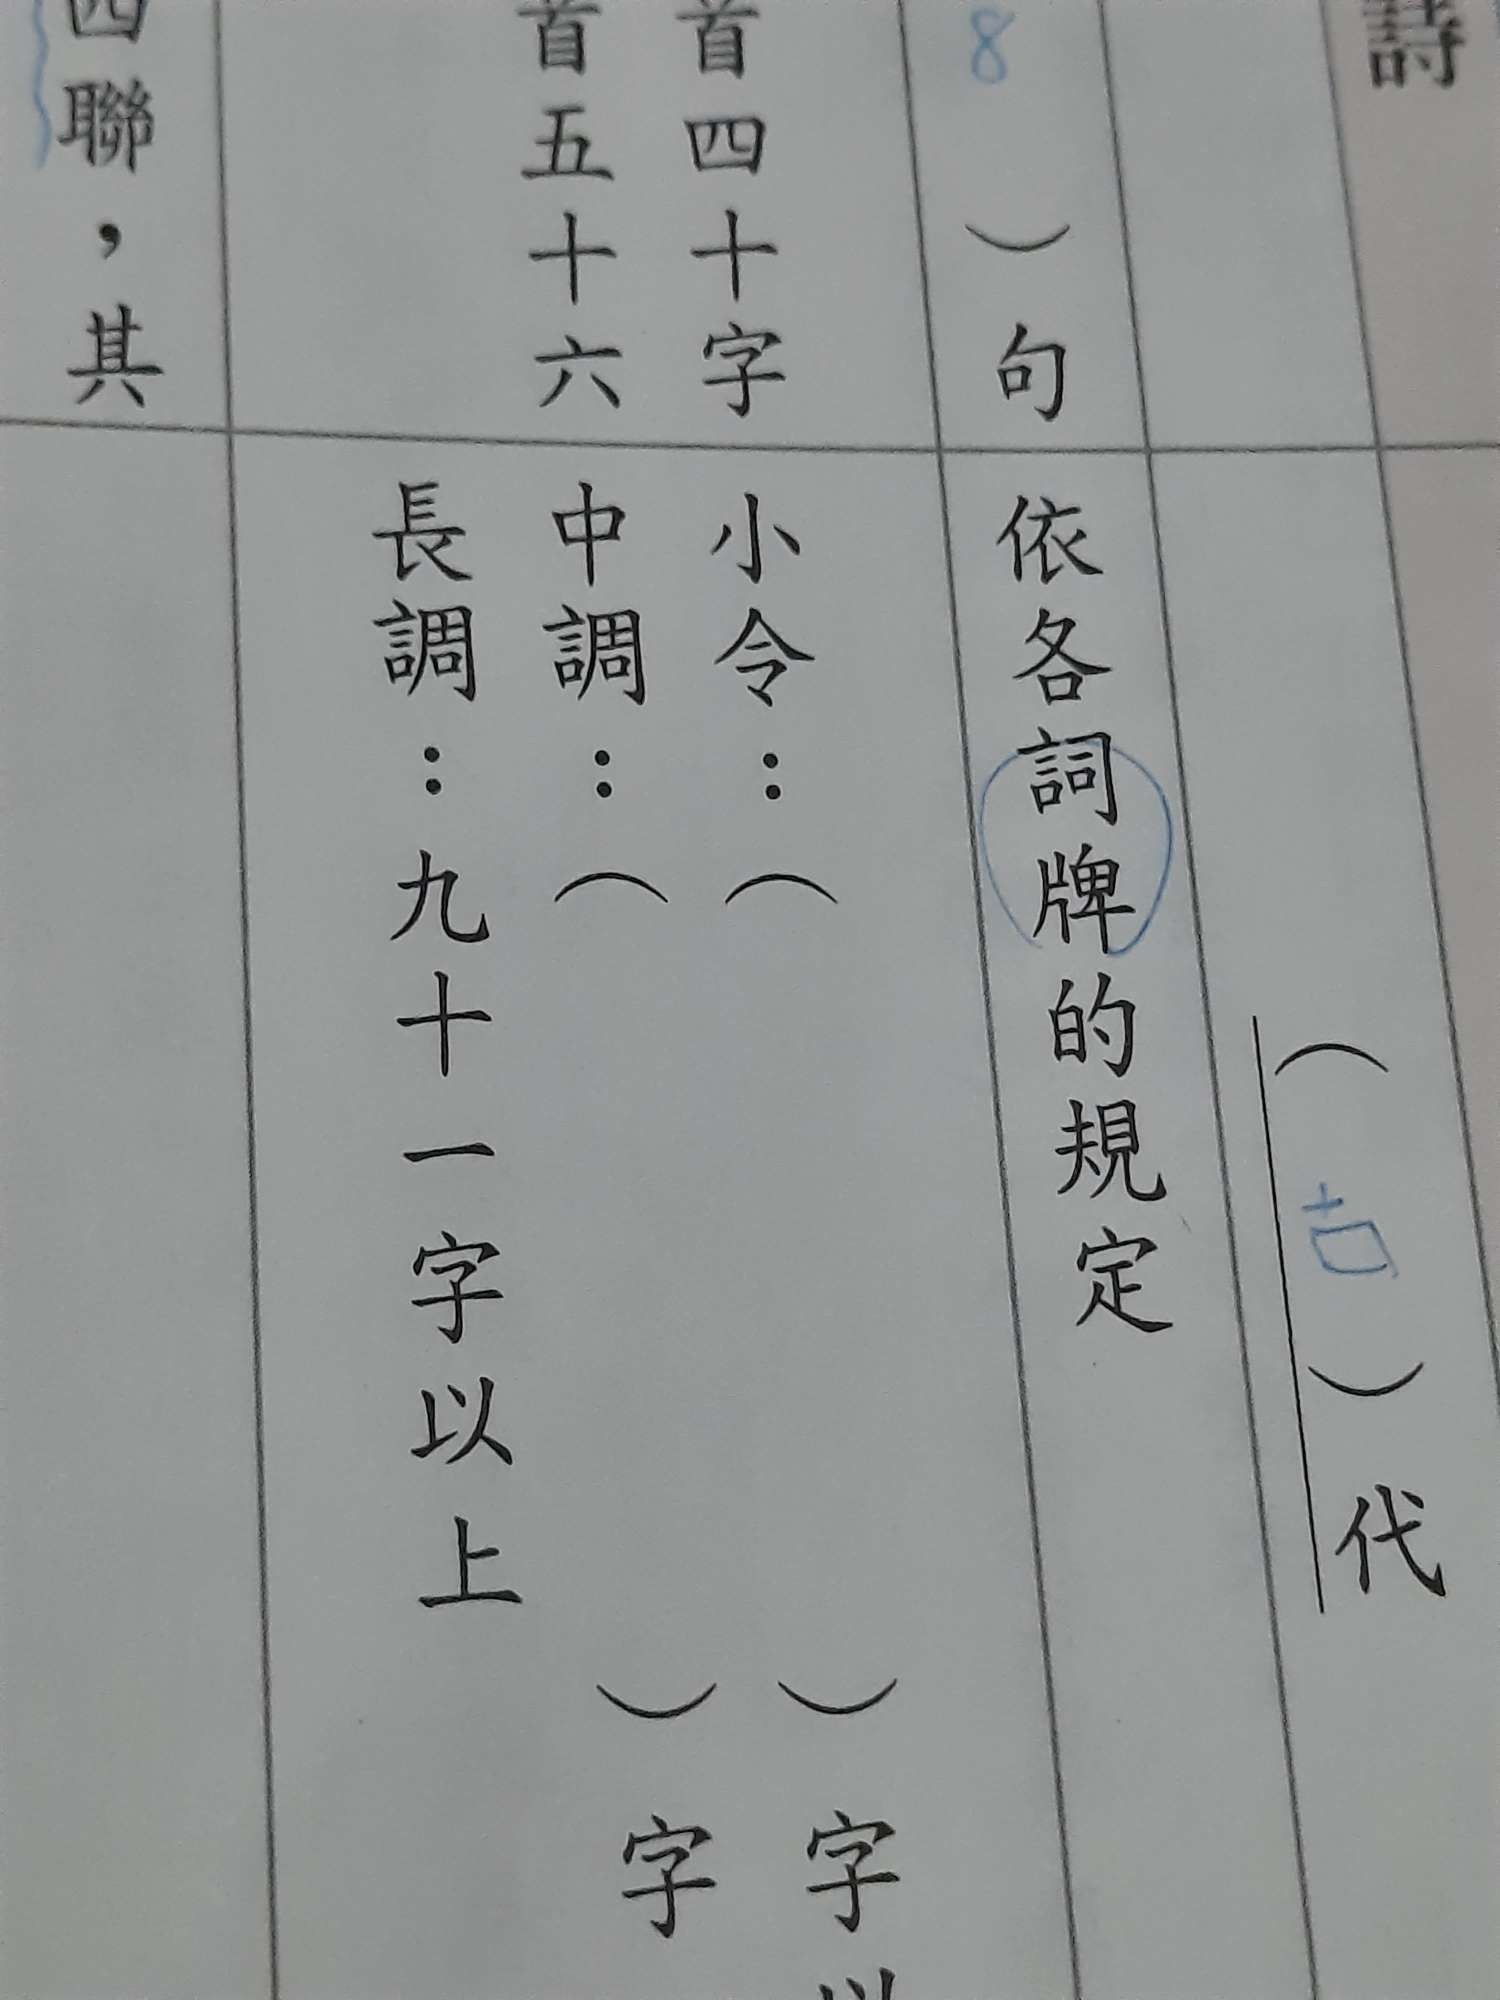 詩
8）句
首四十字
首五十六
四聯，其
（古）代
依各詞牌的規定
小令：（ ）字以
中調：（ ）字
長調：九十一字以上